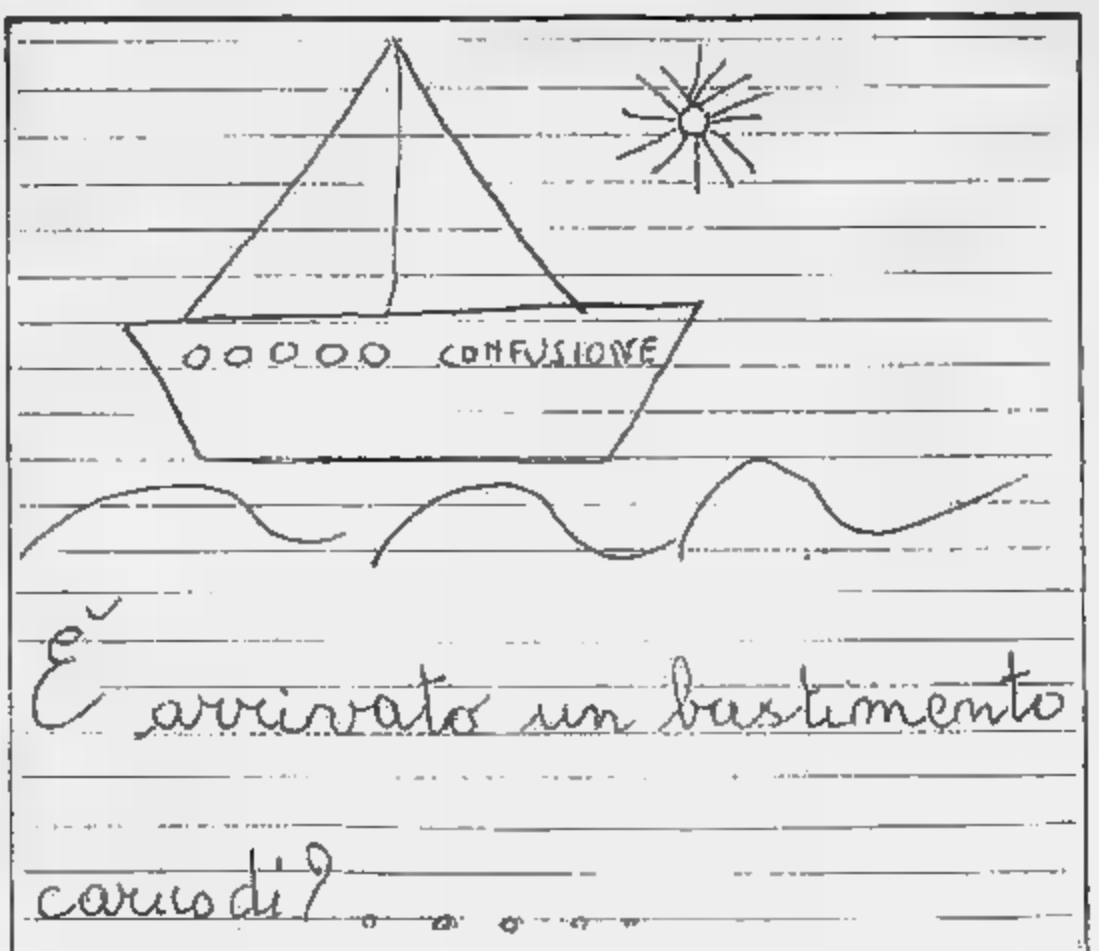 CONFUSIONE
È arrivato un bastimento
carico di? .....